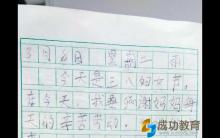 成功教育
3月8日 星期二 雨
今天是三八妇女节,
在今天,我要感谢妈妈每
天的辛苦劳动。